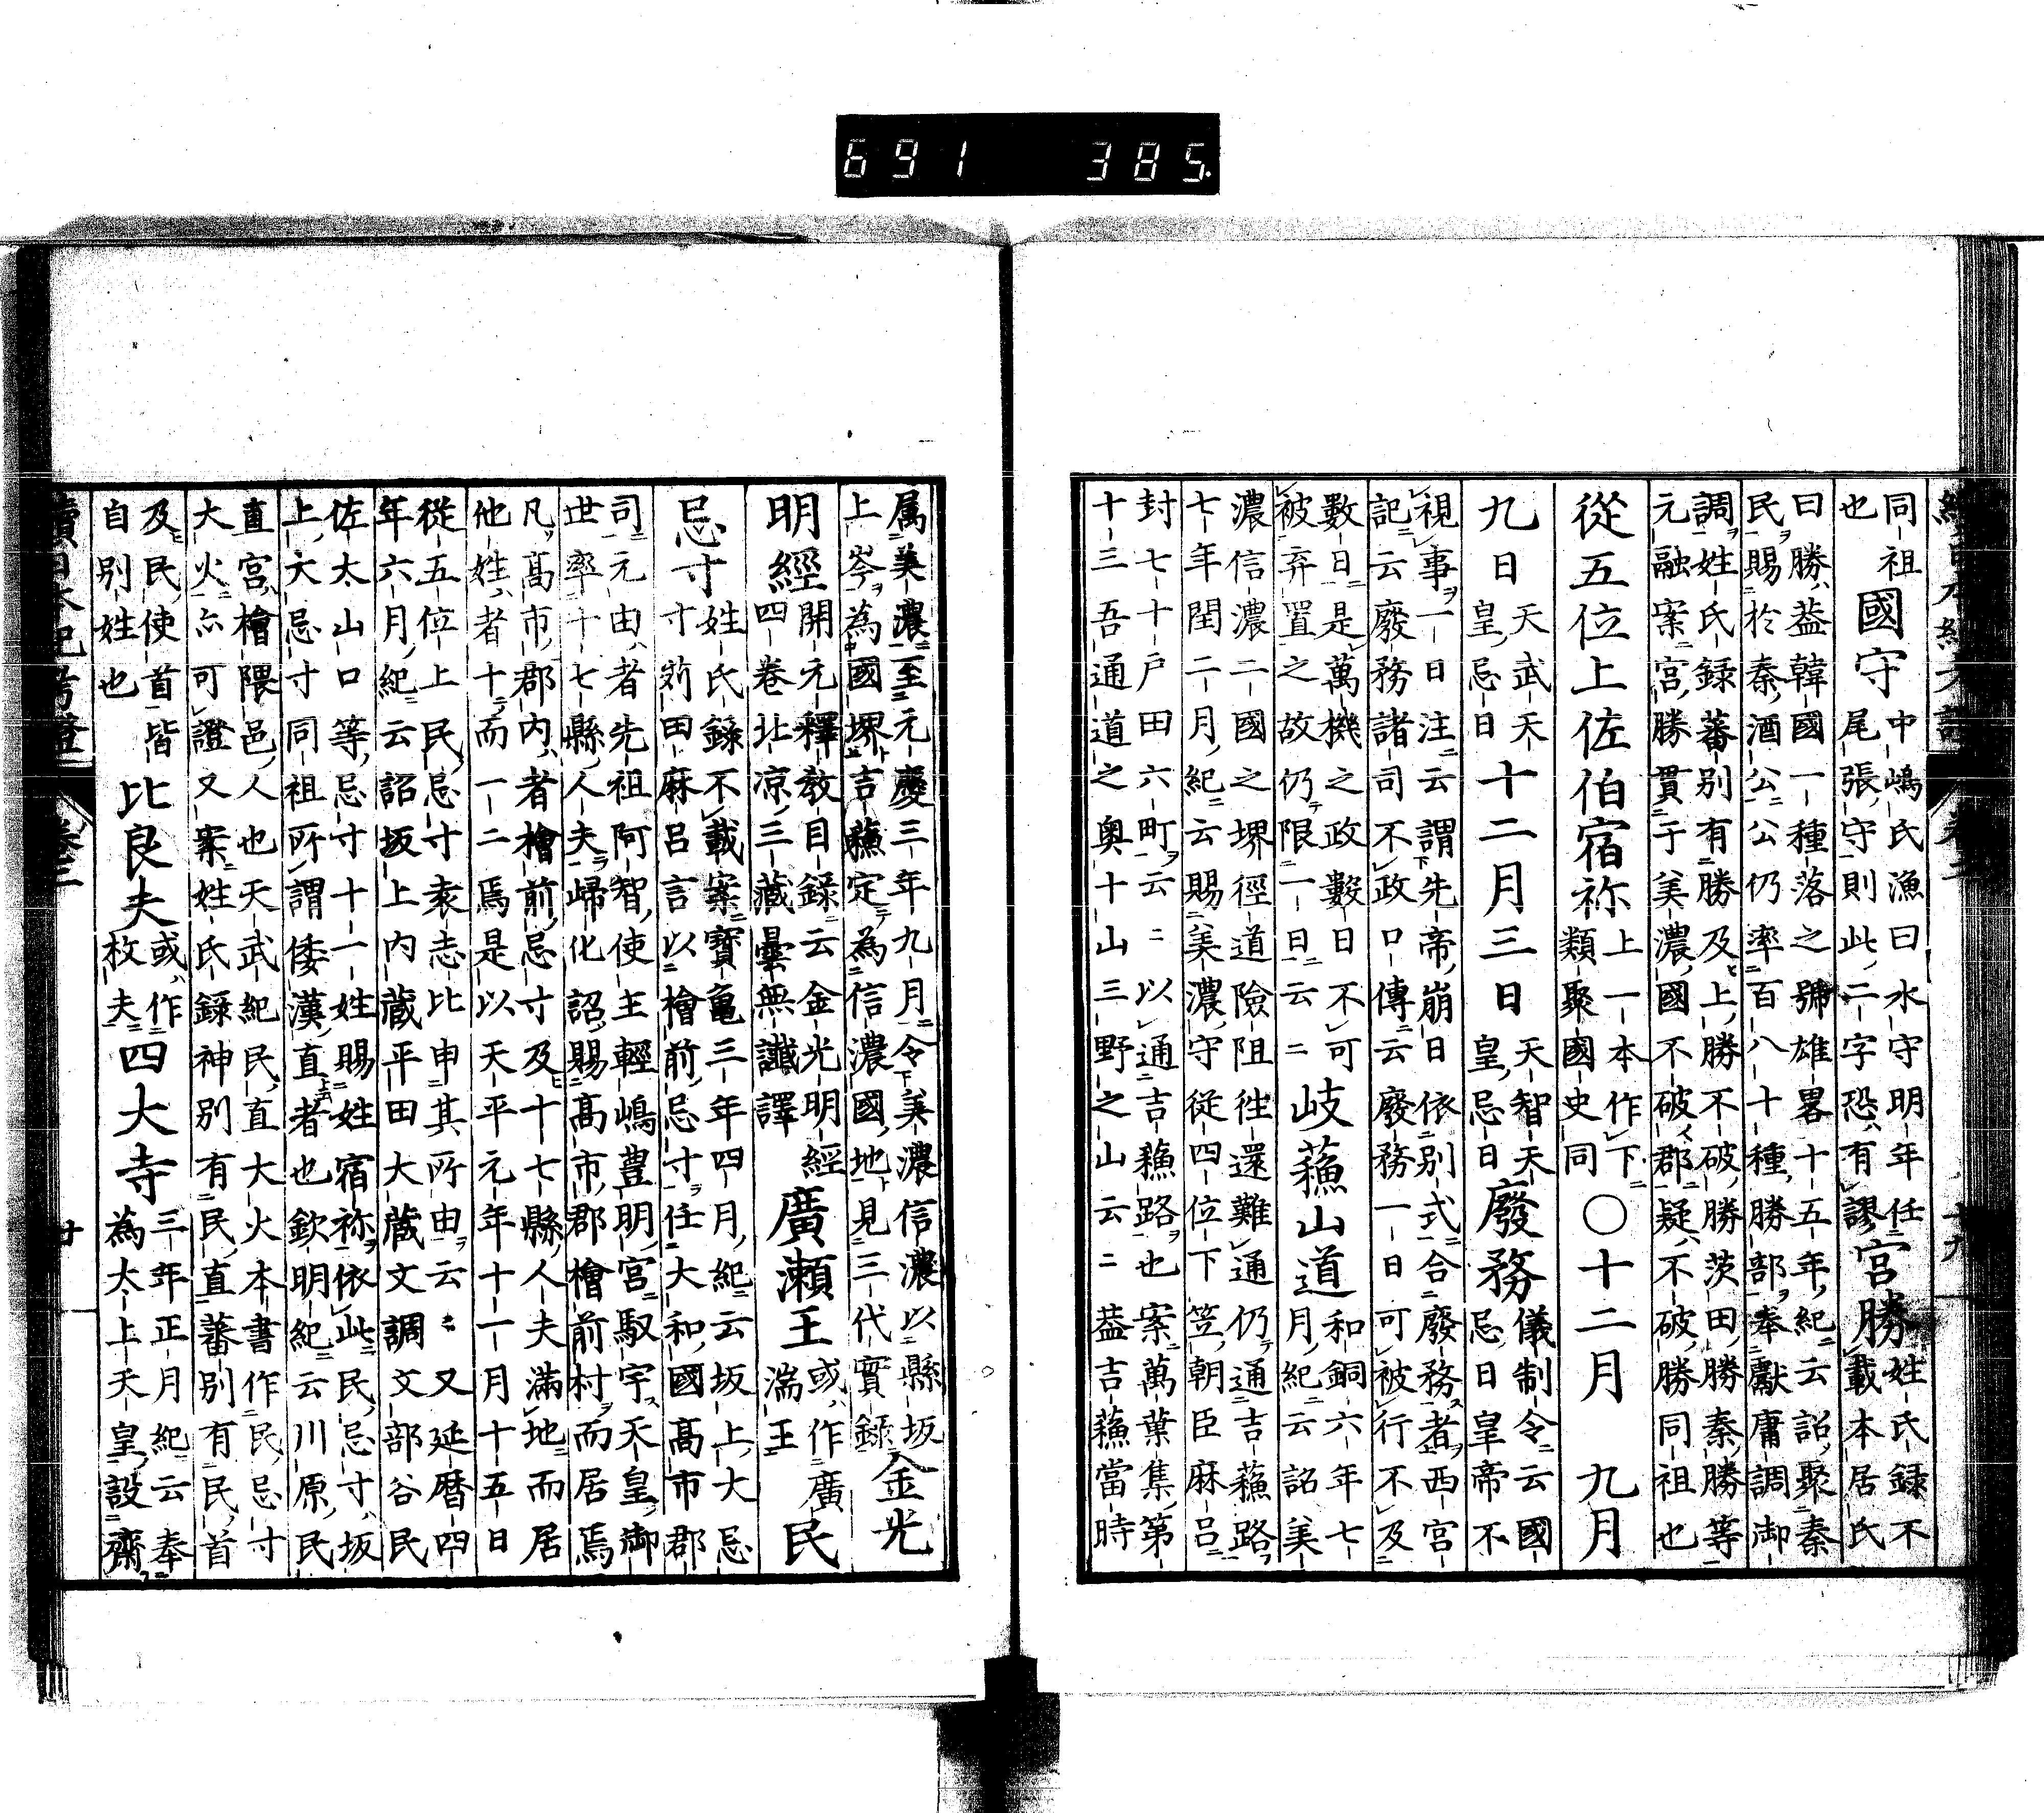 691 385.
同祖國守中嶋氏漁曰水守明年任二宮勝姓氏錄不
也尾張守則此二字恐有謬載本居氏
曰勝蓋韓國一種落之號雄畧十五年紀云詔聚秦
民賜於秦酒公公仍率百八十種勝部奉獻庸調御
調姓氏録蕃別有勝及上勝不破勝茨田勝秦勝等
元融案宮勝貫于美濃國不破郡疑不破勝同祖也
從五位上佐伯宿祢上一本作下類聚國史同〇十二月九月
九日天武天皇忌日十二月三日天智天皇忌日廢務儀制令云國忌日皇帝不
視事一日注云謂先帝崩日依別式合廢務者西宮
記云廢務諸司不政口傳云廢務一日可被行不及
數日是萬機之政數日不可
被弃置之故仍限一日云〻岐蘓山道和銅六年七月紀云詔美
濃信濃二國之堺徑道險阻往還難通仍通吉蘓路
七年閏二月紀云賜美濃守從四位下笠朝臣麻呂
封七十戸田六町云〻以通吉蘓路也案萬葉集第
十三吾通道之奥十山三野之山云〻葢吉蘓當時
属美濃至元慶三年九月令美濃信濃以縣坂
上岑為國堺吉蘓定為信濃國地見三代實録金光
明經開元釋教目録云金光明經四卷北凉三藏曇無讖譯廣瀬王或作廣湍王民
忌寸姓氏錄不載案寳亀三年四月紀云坂上大忌寸苅田麻呂言以檜前忌寸任大和國髙市郡
司元由者先祖阿智使主輕嶋豊明宮馭宇天皇御
世率十七縣人夫歸化詔賜髙市郡檜前村而居焉
凡髙市郡内者檜前忌寸及十七縣人夫滿地而居
他姓者十而一二焉是以天平元年十一月十五日
從五位上民忌寸袁志比申其所由云〻又延暦四
年六月紀云詔坂上内蔵平田大蔵文調文部谷民
佐太山口等忌寸十一姓賜姓宿祢依此民忌寸坂
上大忌寸同祖所謂倭漢直者也欽明紀云川原民
直宮檜隈邑人也天武紀民直大火本書作民忌寸
大火亦可證又案姓氏録神別有民直蕃別有民首
及民使首皆
自別姓也比良夫或作枚夫四大寺三年正月紀云奉為太上天皇設齋